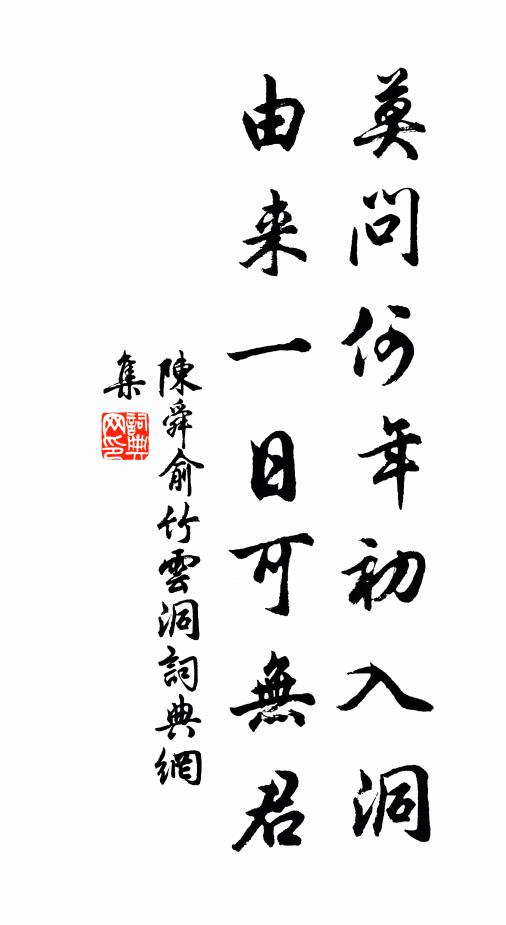 莫問何年初入洞
由来一日可無君
陳舜俞竹雲洞詞典網
集
詞典
网印